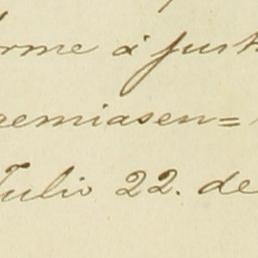 orme á just
remiasen=
Julio 22. de